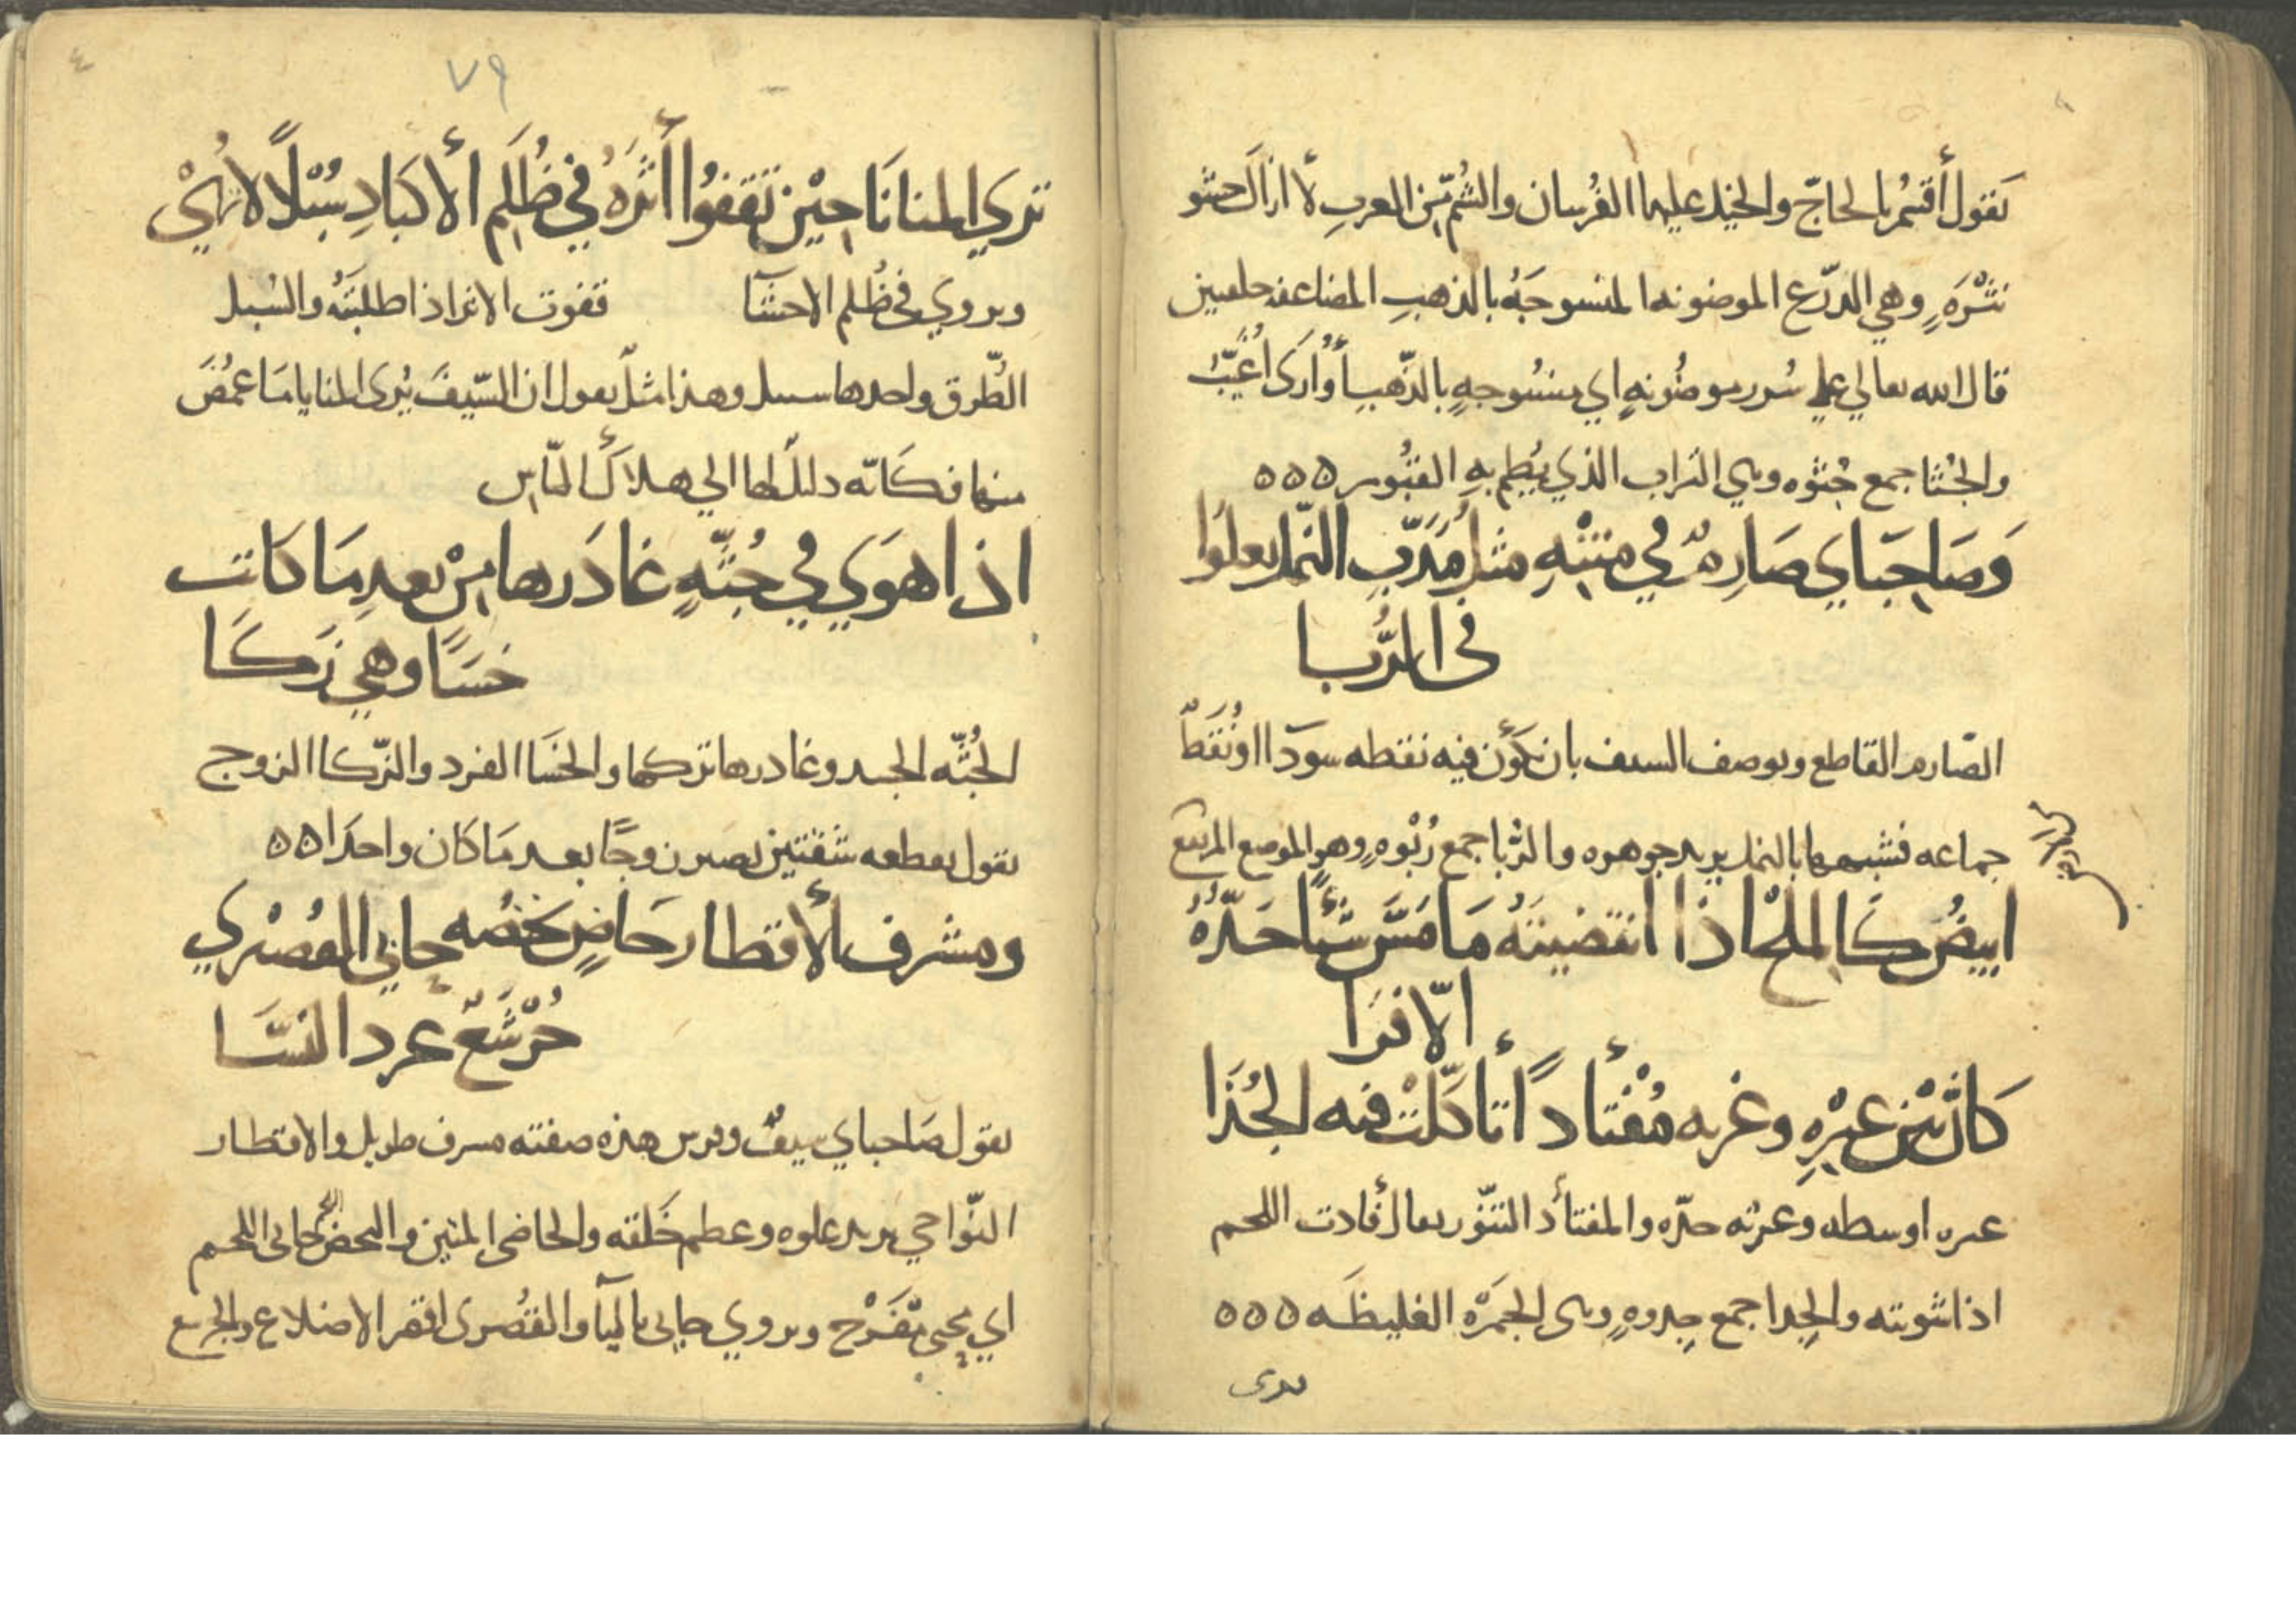 يَقول أُقسُم بالحاجّ والخيل عليها الفُرسان والشُّم مّن العربِ لا ازال حشو
نثْرَهٍ وهي الدّرع الموضونه المنسوجَهُ بالذهبِ المضاعفه حلقتين
قال الله تعالي علي سُرر موضُونهٍ اي منسُوجهٍ بالذّهبِ أو أُارَى أُغَيّبُ
والجُثا جمع جُثوه وهي التراب الذي يُطم به القبُور ٥٥٥
وَصَاحِبَاي صَارِمٌ في متنْهِ مثلُ مَدَبّ النّمل يعلُوا
في الرُّبا
الصّارم القاطع ويوصف السيف بان يَكُون فيه نقطه سودَا او نُقَطٌ
جماعه فشبهها بالنمل يريد جوهره والرُبا جمع رُبْوهٍ وهو الموضع المرتفع
ابيضُ كَالملْح اذا انتضيتَهُ مَا مَسَّ شيًا حَدّهُ
الّا فرَا
كَان بَيْن عيْرِهِ وغربه مُفْتأَداً تَأكلّتْ فيه الجُذَا
عيره اوسطه وغربُه حدّه والمفتأد التنّور يقال فأدت اللحم
اذا شويته والجِذا جمع جِذوهٍ وهي الجمَرْه الغليظَه ٥٥٥
تري
٧٩
٤
تري المنايَا حِيْن تَقفوُا أَثَرَهُ في ظُلَمِ الأكبَادِ سُبْلًا لا تُرَيْ
ويروي في ظُلم الاحشآ قفوت الاثر اذا طلبتَهُ والسُبل
الطّرق واحدها سبيل وهذا مثلٌ يقول ان السّيفَ يُري المنايا مَا غمُضَ
منها فكَانّه دليلٌ لها الي هلاك النّاس
اذا هوَي في جُثّهٍ غادَرها مِنْ بعدِ مَا كَانت
خَسًا وهي زَكَا
الجُثّه الجسد وغادرها تركها والخسَا الفرد والزّكا الزوج
يقول يقطعه شقتين يصير زوجًا بعد مَا كان واحدَا ٥٥
ومشرف الأقطار خَاضٍ نحضُه حابي القُصْري
جُرْشَعٌ عرد النسَّا
يقول صَاحباي سيفٌ وفرس هذه صفته مشرف طويل والاقطار
النّواحي يريد علوه وعظم خَلقته والخاضي المتين والنحض اللحم
اي يحيى مُتفَرّج ويروي جابي باليآ والقُصرى افقر الاضلاع والجرشع